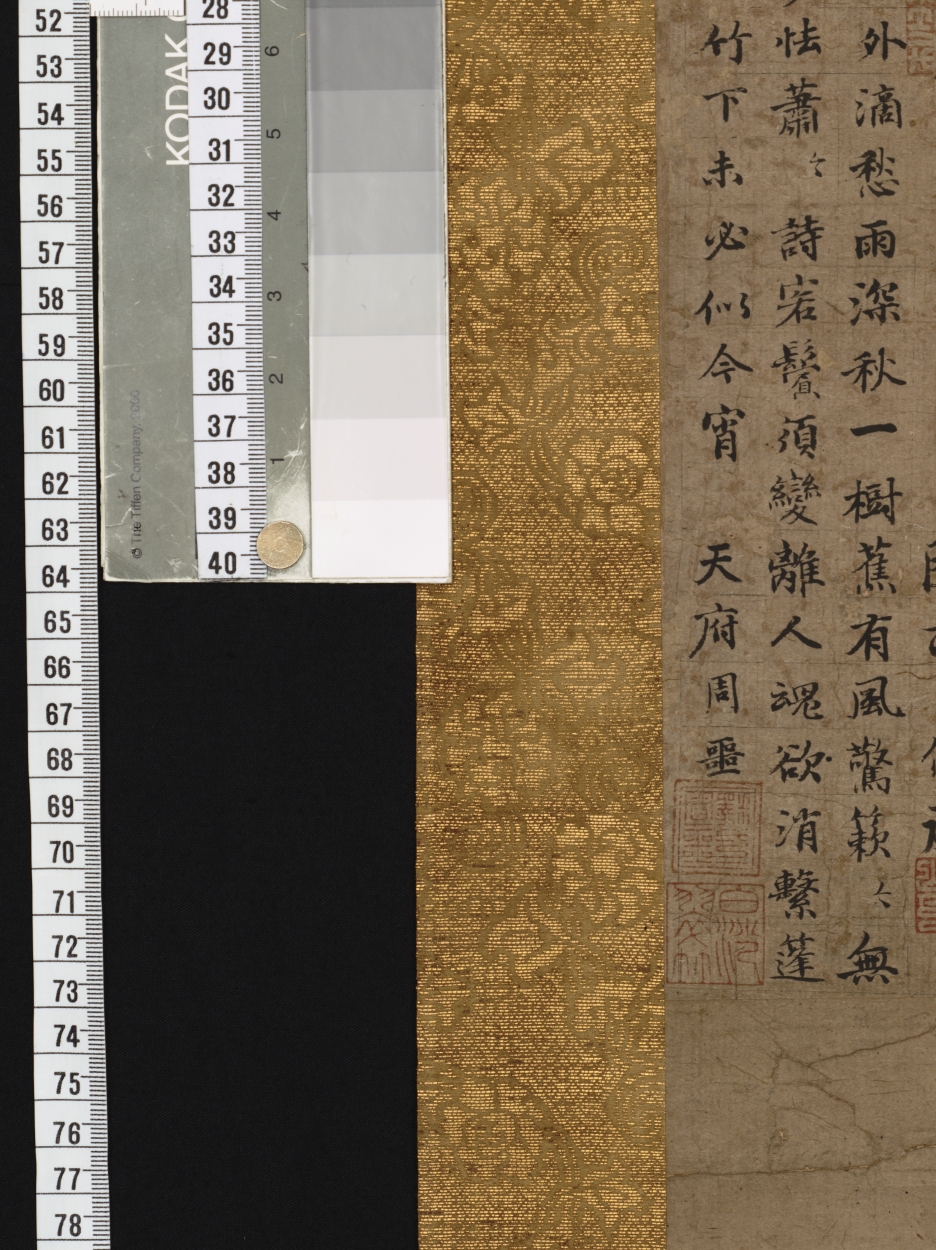 外滴愁雨深秋一樹蕉有風驚籟〻無
怯蕭〻詩客鬢須變離人魂欲消繫蓬
竹下未必似今宵 天府周噩
KODAK
© The Tiffen Company, 2000
6
5
4
3
2
1
28
29
30
31
32
33
34
35
36
37
38
39
40
52
53
54
55
56
57
58
59
60
61
62
63
64
65
66
67
68
69
70
71
72
73
74
75
76
77
78